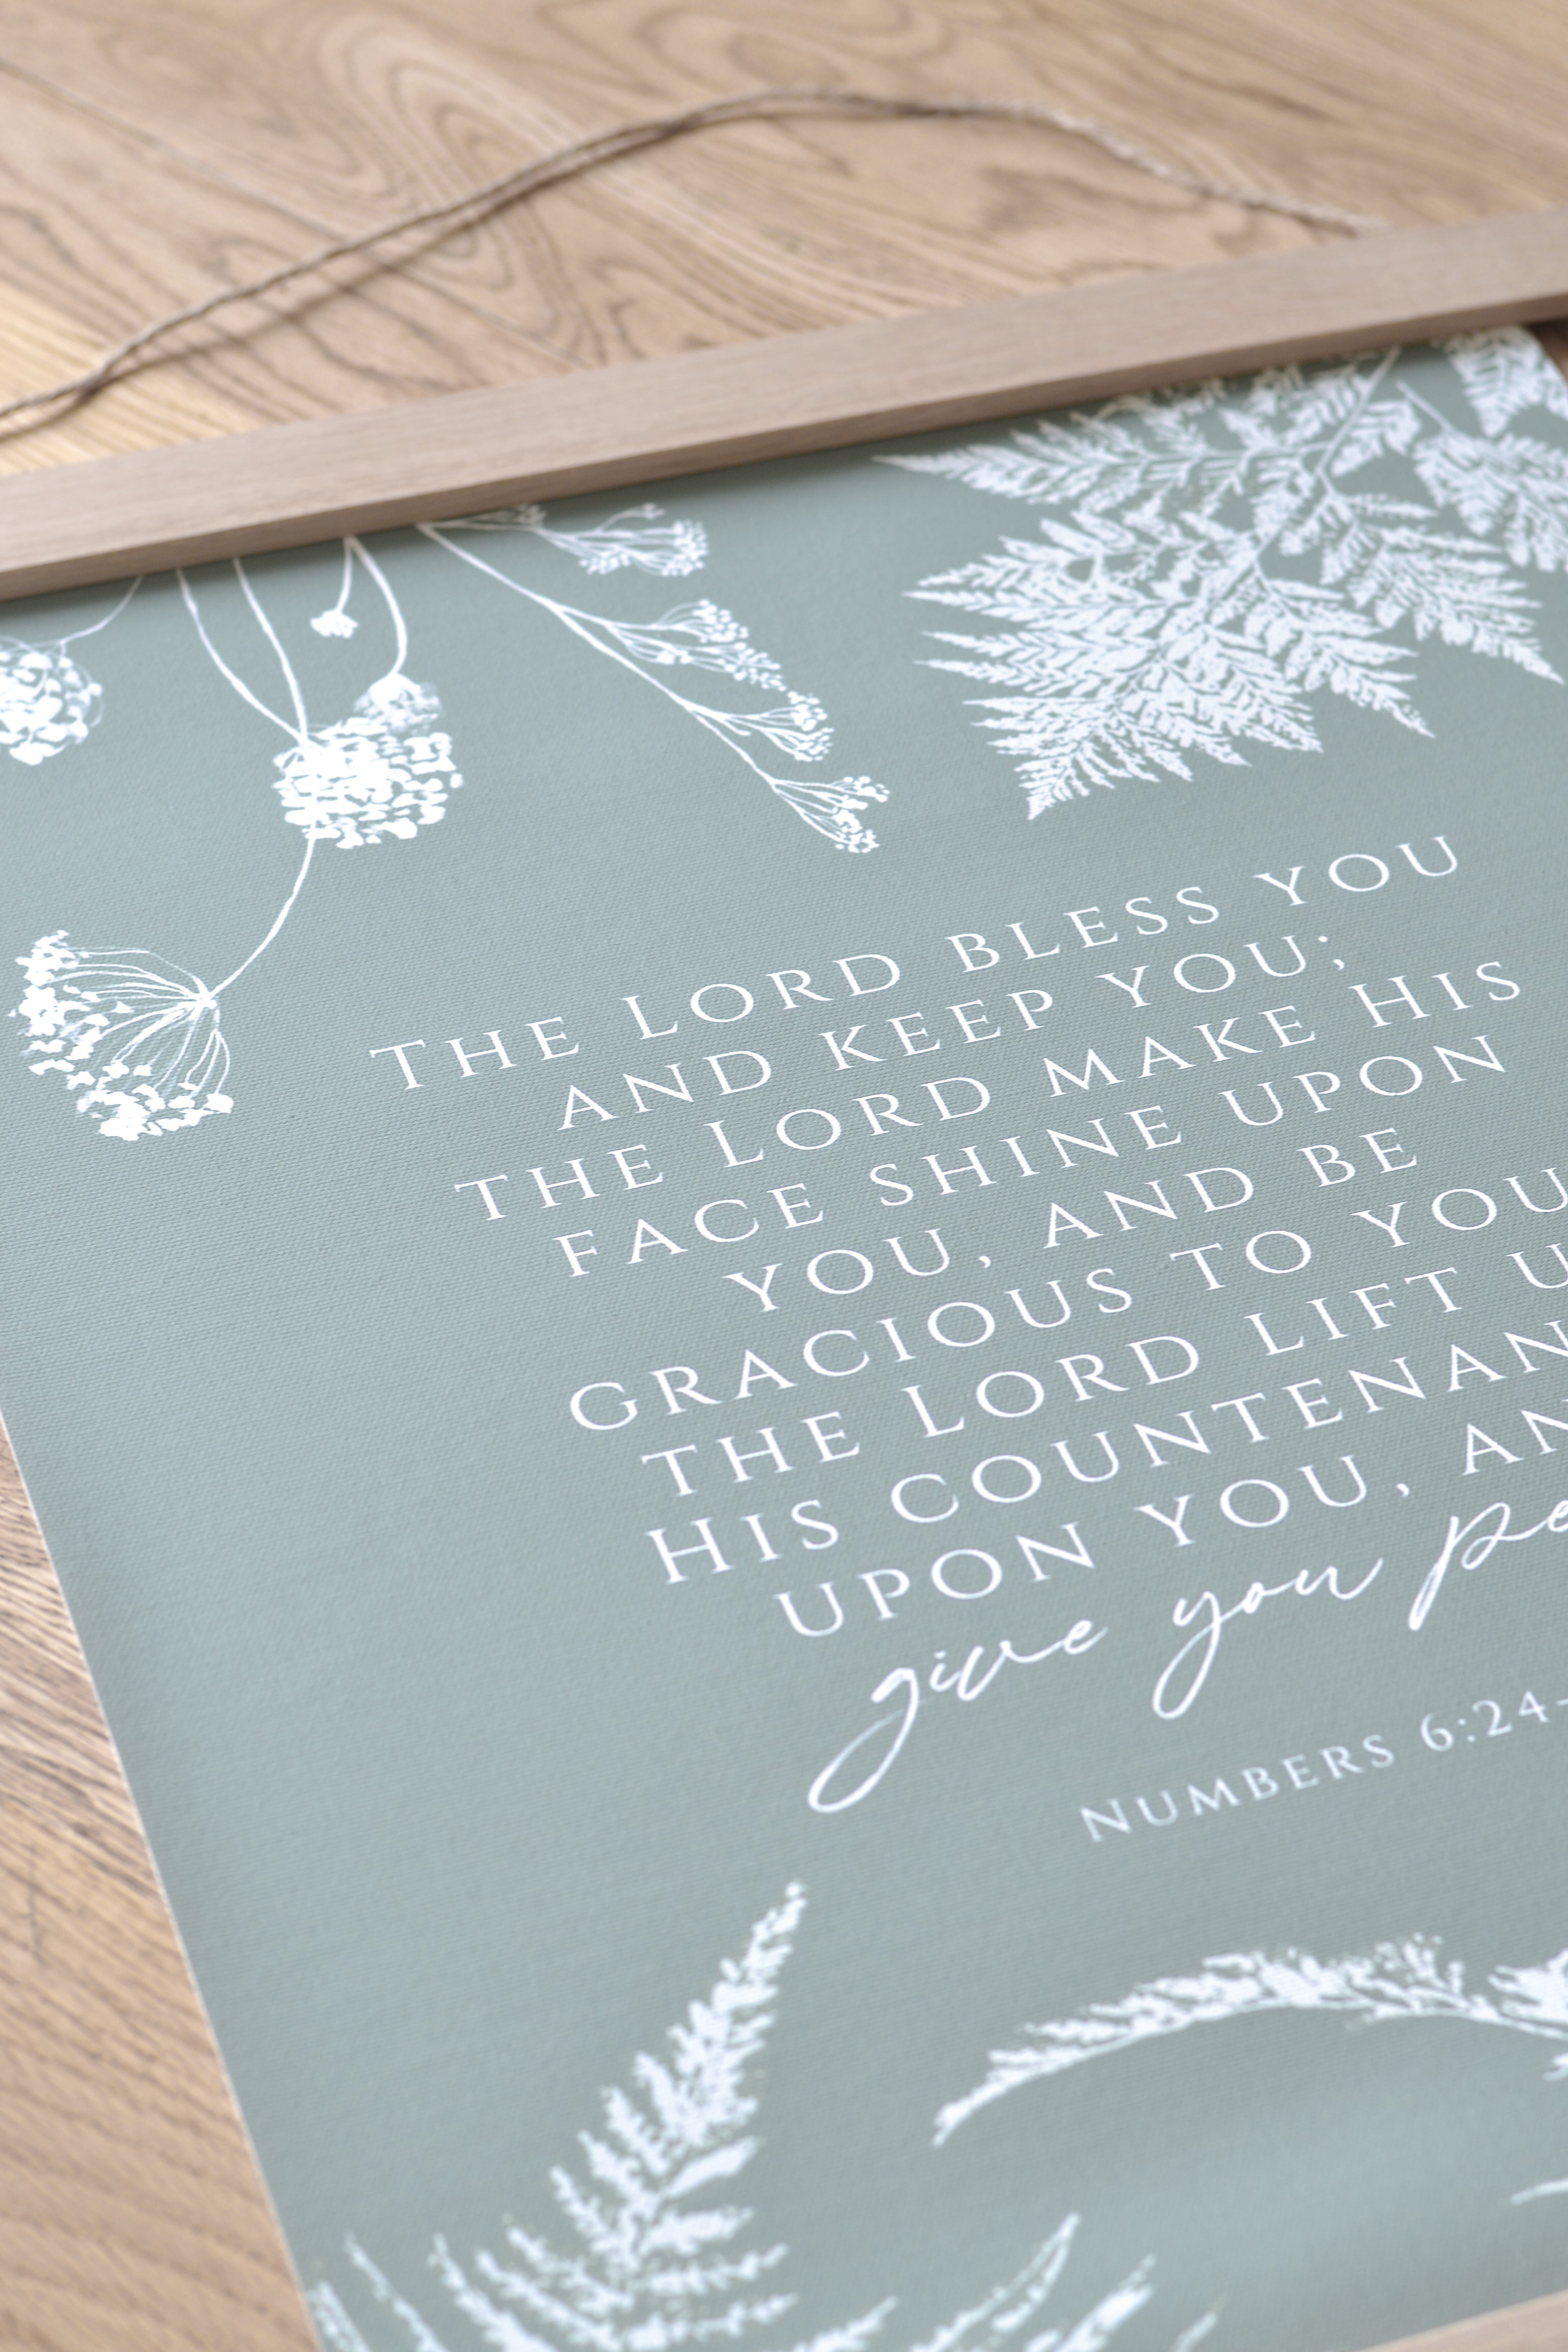 The Lord bless you
and keep you;
the Lord make His
face shine upon
you, and be
gracious to you
the Lord lift u
His countenan
upon you, an
give you pe
Numbers 6:24-